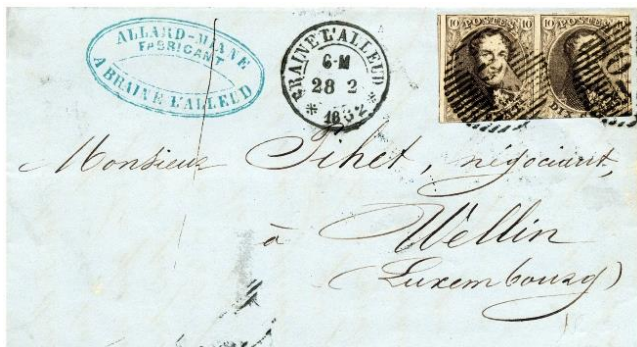 ALLARD-MINNE
FABRICANT
A BRAINE L'ALLEUD
BRAINE L'ALLEUD
6-M
28 2
10 POSTES 10
10 POSTES 10
Monsieur Pihet, négociant,
à
Wellin
(Luxembourg)